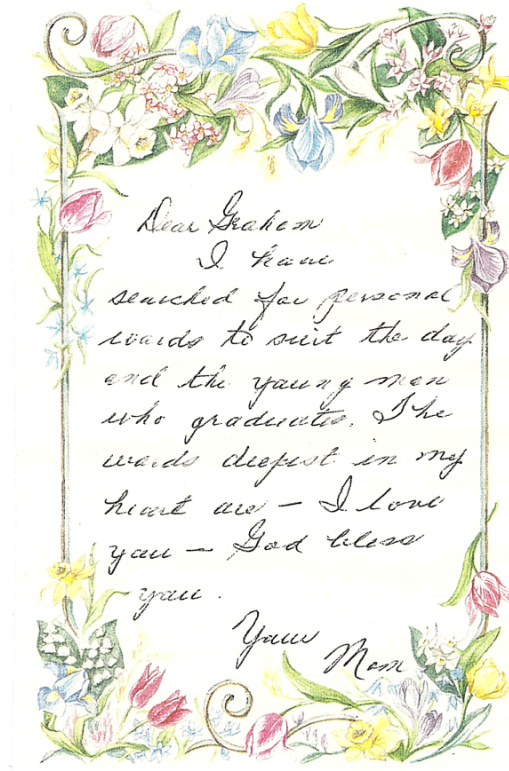 Dear Graham
I have
searched for personal
words to suit the day
and the young man
who graduates. The
words deepest in my
heart are — I love
you — God bless
you.
Your
Mom